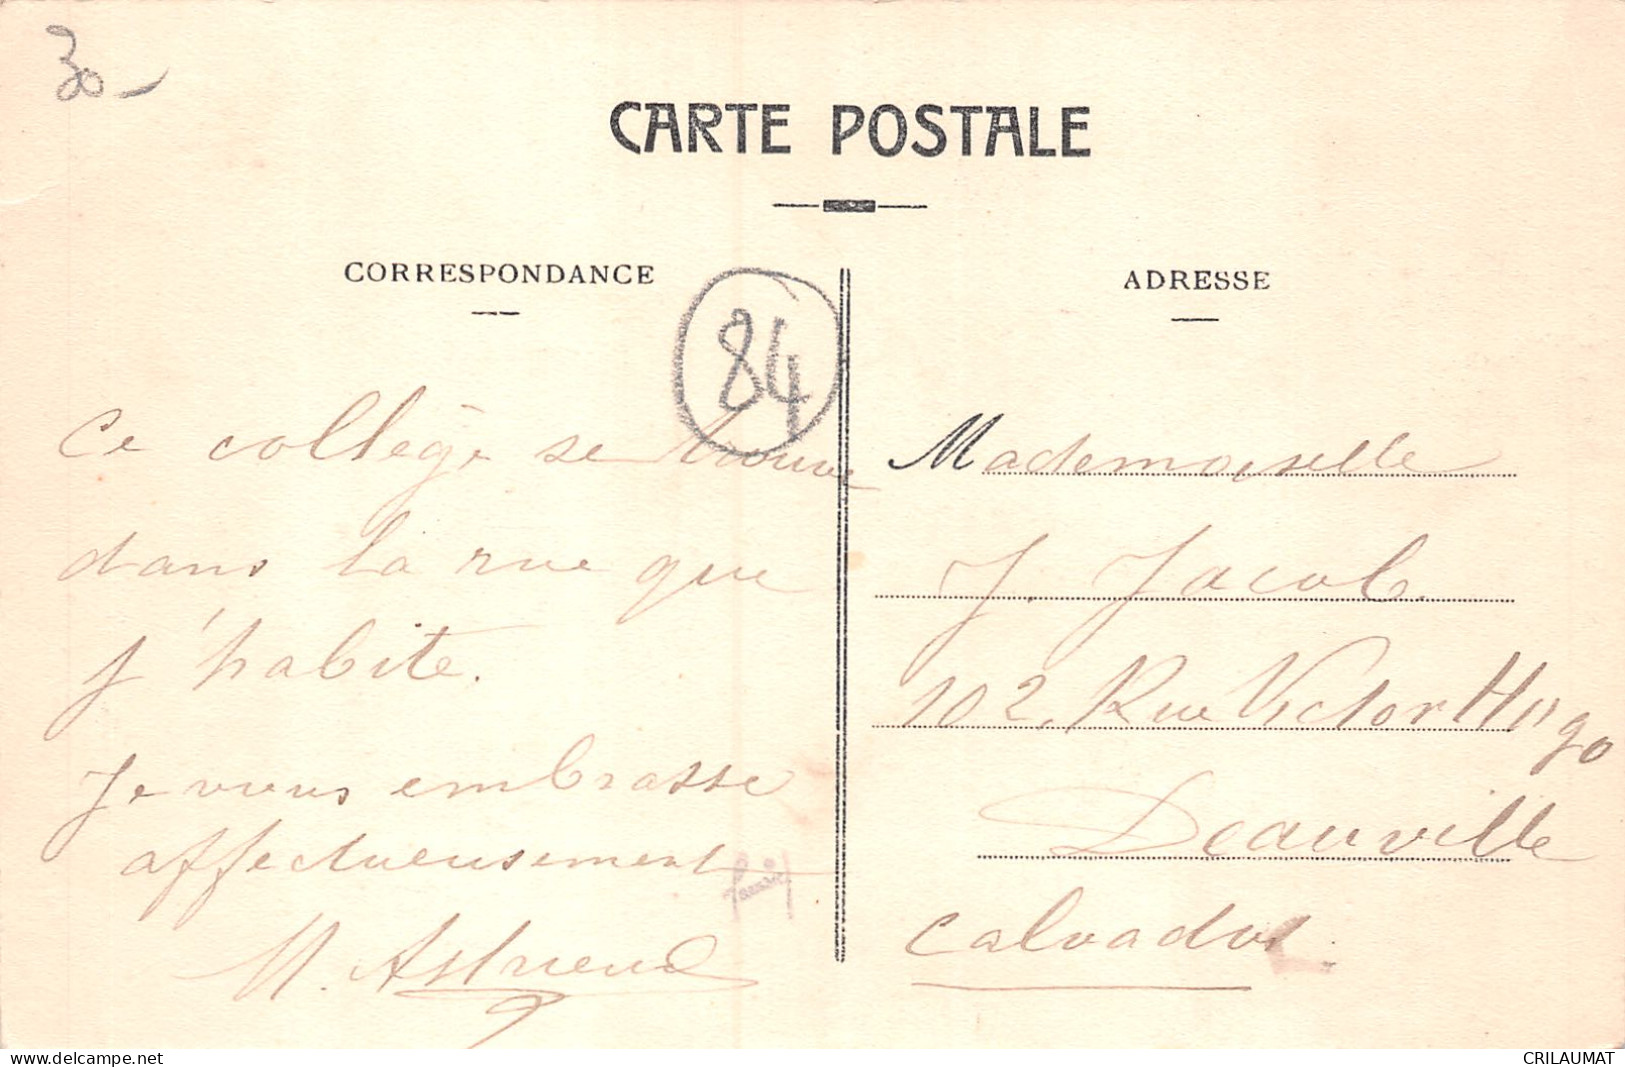 30
CARTE POSTALE
CORRESPONDANCE
84
Ce collège se trouve
dans la rue que
j'habite.
Je vous embrasse
affectueusement
M.
ADRESSE
Mademoiselle
J. Jacob.
102, Rue Victor Hugo
Deauville
Calvados.
www.delcampe.net
CRILAUMAT